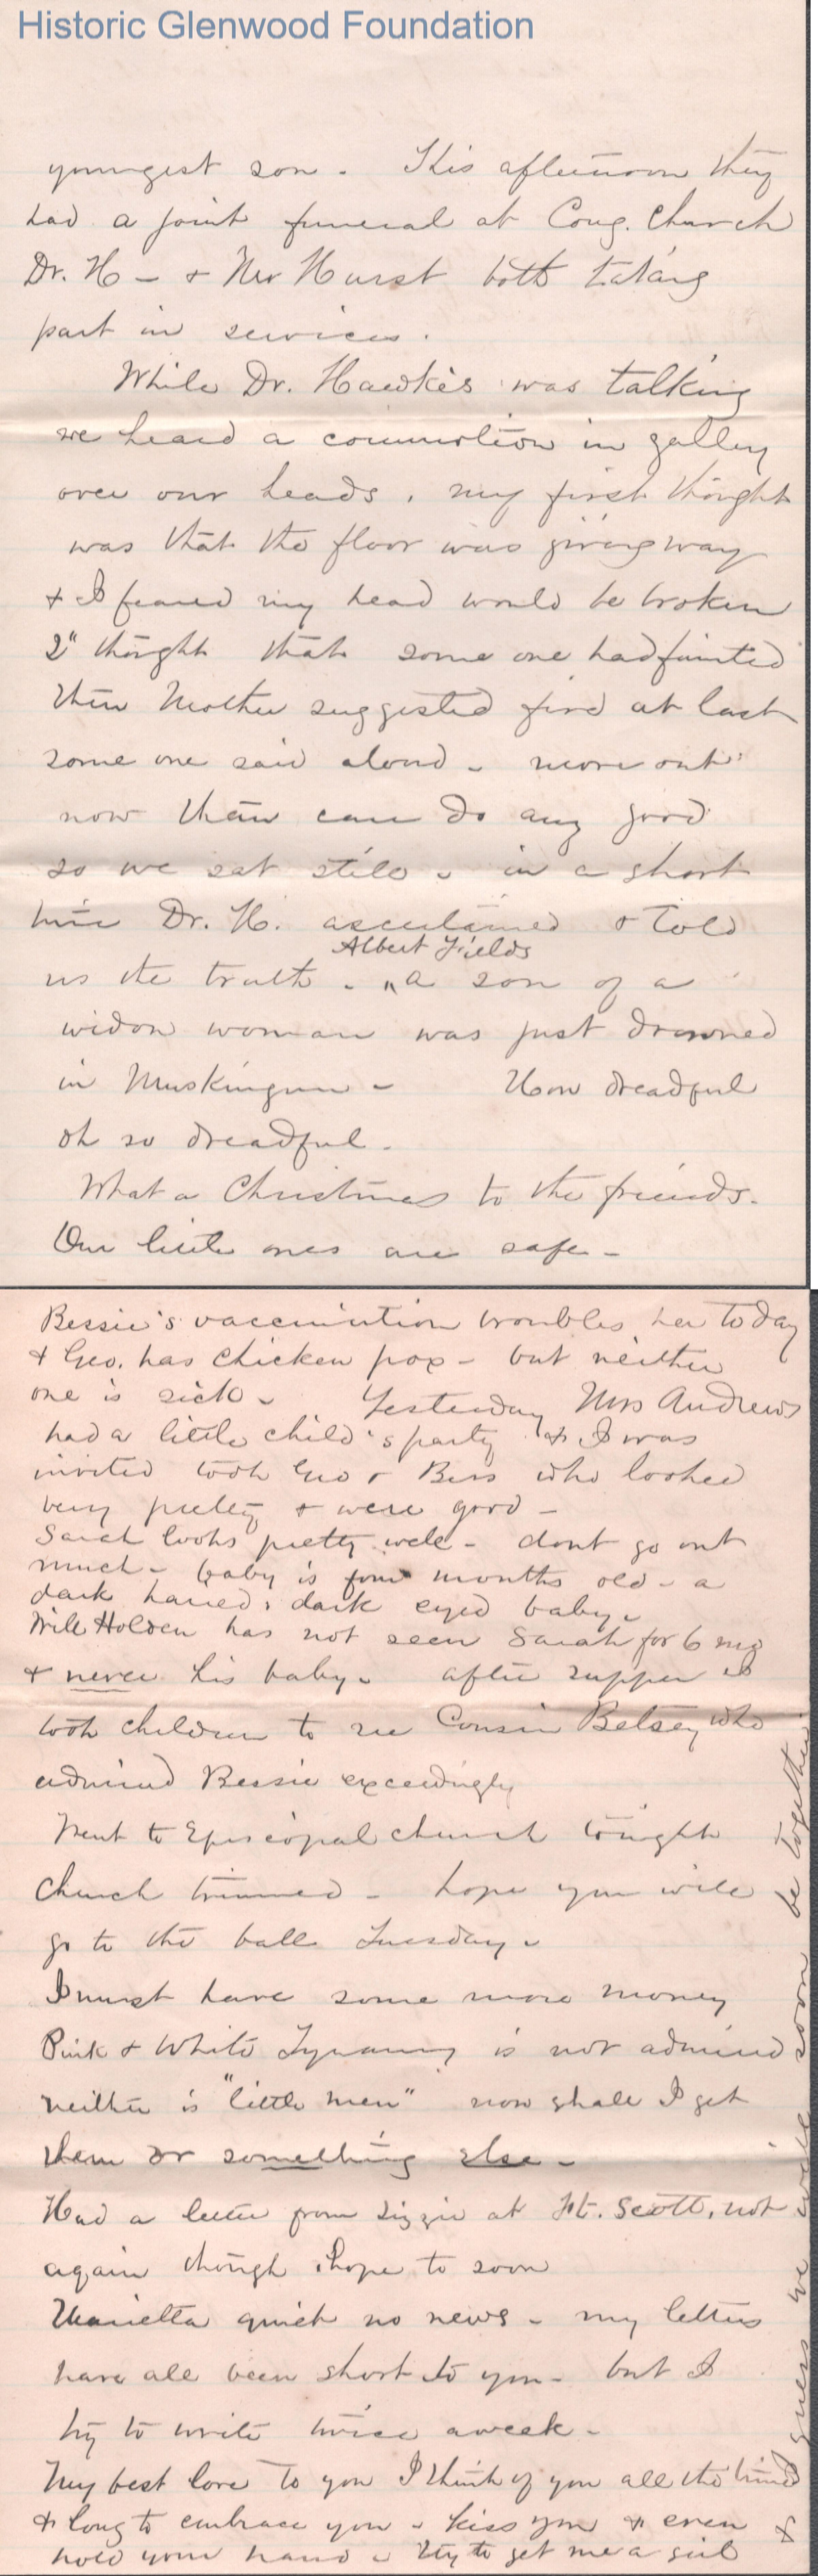 Historic Glenwood Foundation
youngest son. This afternoon they
had a joint funeral at Cong. Church
Dr. H— + Mr Hurst both taking
part in services.
While Dr. Hawkes was talking
we heard a commotion in gallery
over our heads, my first thought
was that the floor was giving way
+ I feared my head would be broken
2" thought that some one had fainted
then Mother suggested fire at last
some one said aloud - more out
now than can do any good
so we sat still - in a short
time Dr. H. ascertained + told
Albert Fields
us the truth - " a son of a
widow woman was just drowned
in Muskingum - How dreadful
oh so dreadful.
What a Christmas to the friends.
Our little ones are safe -
Bessie's vaccination troubles her today
+ Geo. has chicken pox - but neither
one is sick - Yesterday Mrs Andrews
had a little child's party + I was
invited took Geo + Bess who looked
very pretty + were good -
Sarah looks pretty well - dont go out
much - baby is four months old - a
dark haired, dark eyed baby.
Will Holden has not seen Sarah for 6 mo
+ never his baby. after supper I
took children to see Cousin Betsey who
admired Bessie exceedingly
Went to Episcopal church tonight
Church trimmed - hope you will
go to the ball Tuesday.
I must have some more money
Pink + White Tyranny is not admired
neither is "little men" now shall I get
them or something else -
Had a letter from Lizzie at Ft. Scott, not
again though I hope to soon
Marietta quiet no news - my letters
have all been short to you - but I
try to write twice a week -
My best love to you I think of you all the time
+ long to embrace you - kiss you + even
hold your hand - try to get me a girl
+ guess we will soon be together